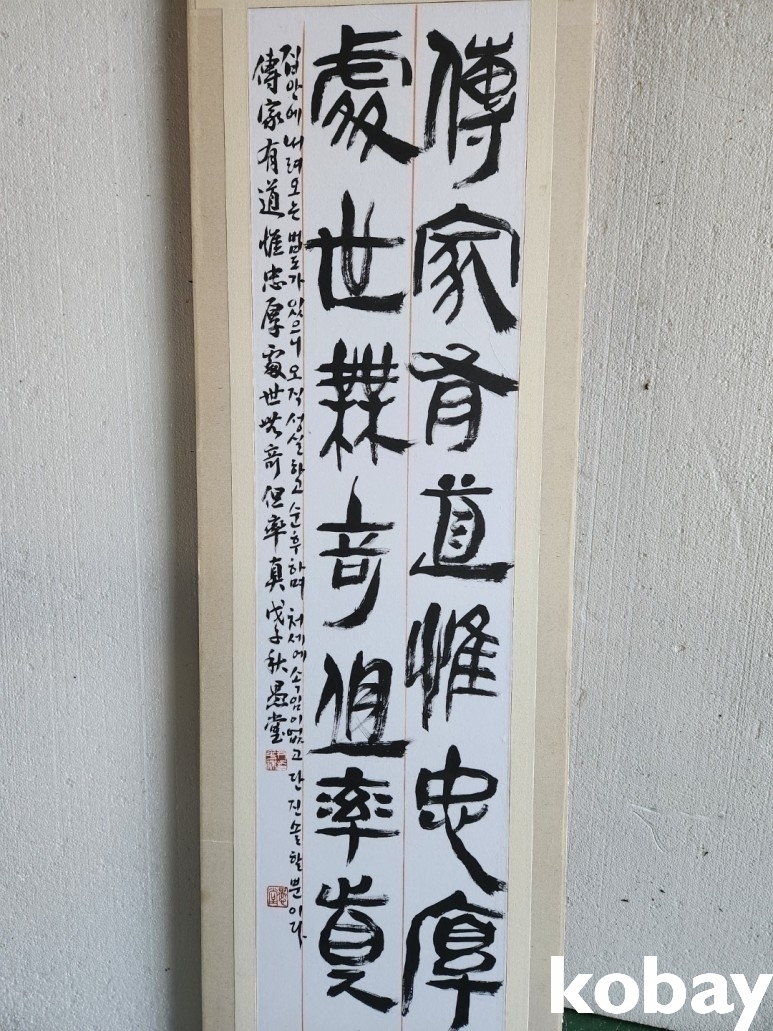 傳家有道惟忠厚
處世無奇但率真
집안에 내려오는 법도가 있으니 오직 성실하고 순후하며 처세에 속임이 없고 단 진솔할 뿐이다.
傳家有道惟忠厚處世無奇但率真 戊子秋 愚堂
kobay